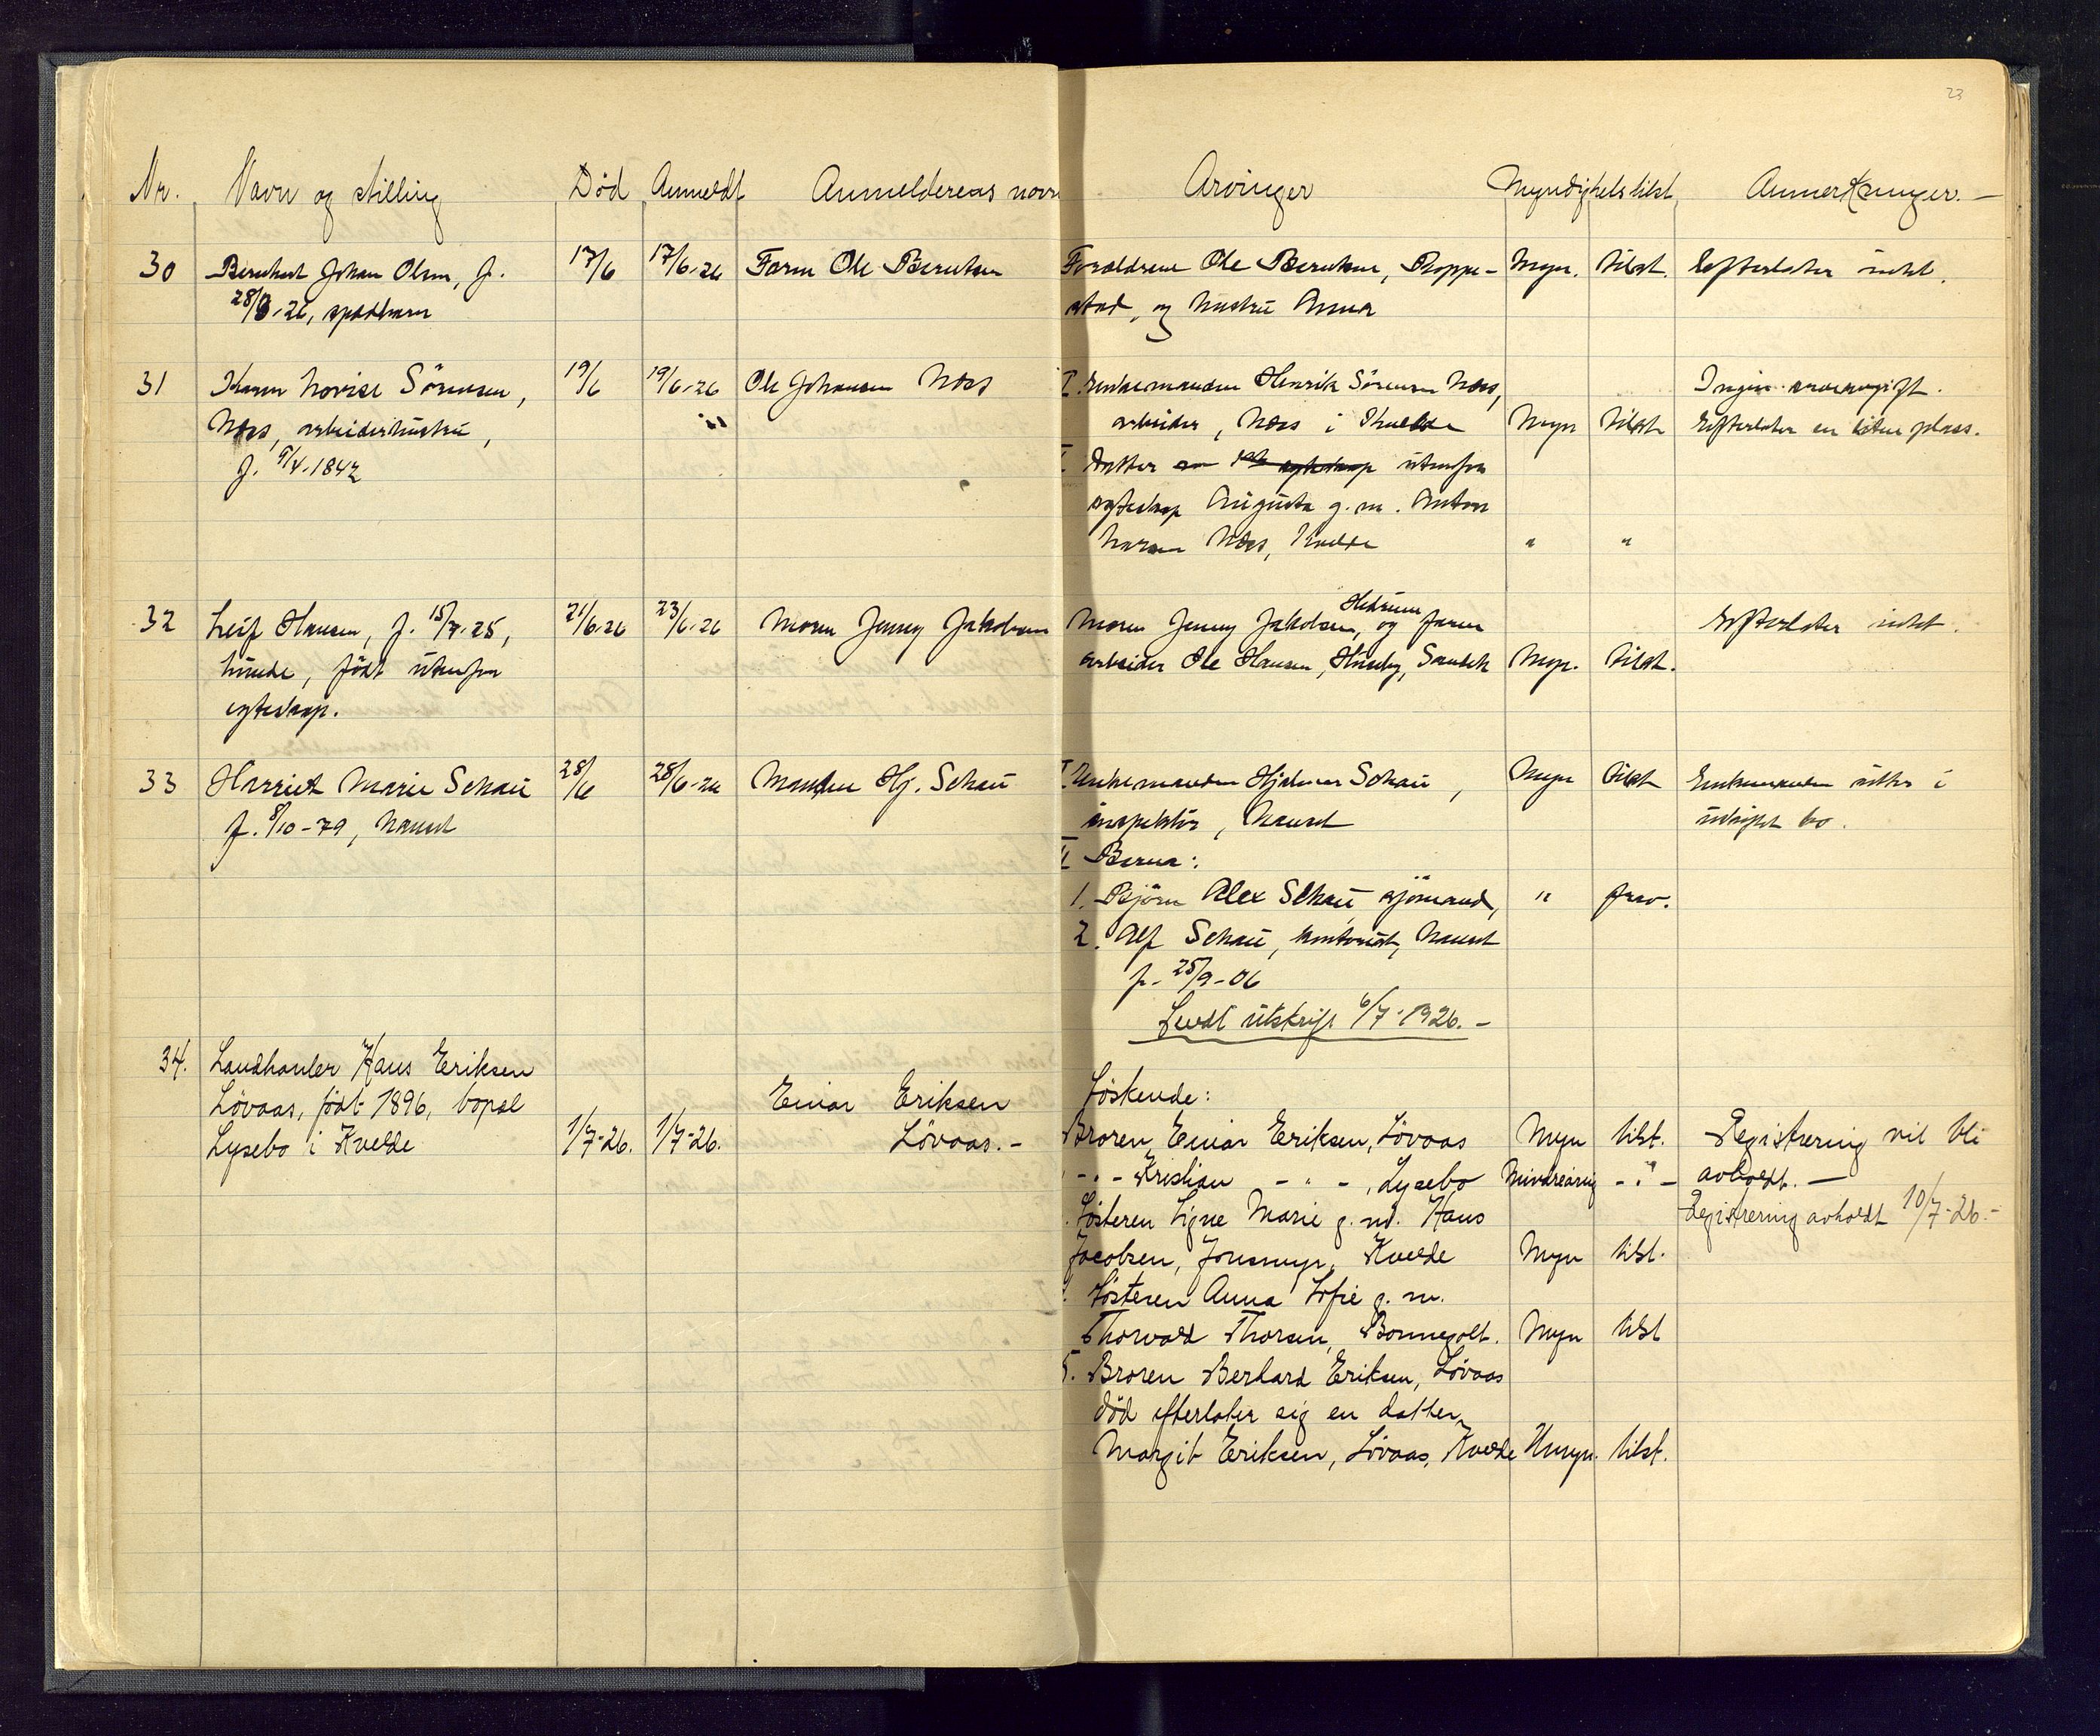 23
Nr. Navn og stilling Död Anmeldt Anmelderens navn Arvinger Myndighetstilst. Anmerkninger. —
30 Bernhart Johan Olsen, f. 17/6 17/6-26 Faren Ole Berntsen Forældrene Ole Berntsen, Roppe- Myn. tilst. Efterlater intet.
28/3-26, spædbarn stad, og hustru Anna
31 Karen Lovise Sörensen, 19/6 19/6-26 Ole Johansen Næs I. Enkemanden Henrik Sörensen Næs, Ingen arveavgift.
Næs, arbeiderhustru, arbeider, Næs i Kvelde Myn tilst Efterlater en liten plass.
f. 9/4-1842 Datter utenfor
egteskap Augusta g. m. Anton
Larsen Næs, Kvelde " "
32 Leif Hansen, f. 15/7-25, 21/6-26 23/6-26 Moren Jenny Jakobsen Moren Jenny Jakobsen, Hedrum og faren Efterlater intet.
Lunde, födt utenfor arbeider Ole Hansen, Huseby, Myn. tilst.
egteskap.
33 Harriet Marie Schau 28/6 28/6-26 Manden Hj. Schau I Enkemanden Hjalmar Schau, Myn tilst Enkemanden sitter i
f. 8/10-79, Nanset inspektör, Nanset uskiftet bo.
II Barna:
1. Björn Alex Schau sjömand, " frav.
2. Alf Schau, kontorist, Nanset
f. 25/9-06
Sendt utskrift 6/7-1926. —
34. Landhanler Hans Eriksen
Lövaas, födt 1896, bopæl Einar Eriksen Söskende:
Lysebo i Kvelde 1/7-26. 1/7-26. Lövaas. - Broren Einar Eriksen, Lövaas Myn tilst. Registrering vil bli
- " - Kristian - " - , Lysebo Mindreårig - " - avholdt. —
Søsteren Signe Marie g. m. Hans Registrering avholdt 10/7-26. -
Jacobsen, Kvelde Myn tilst.
Søsteren Anna Sofie g. m.
Thorvald Thorsen, Bonnegolt. Myn tilst
5. Broren Berhard Eriksen, Lövaas
död efterlater sig en datter,
Margit Eriksen, Lövaas, Kvelde Umyn. tilst.